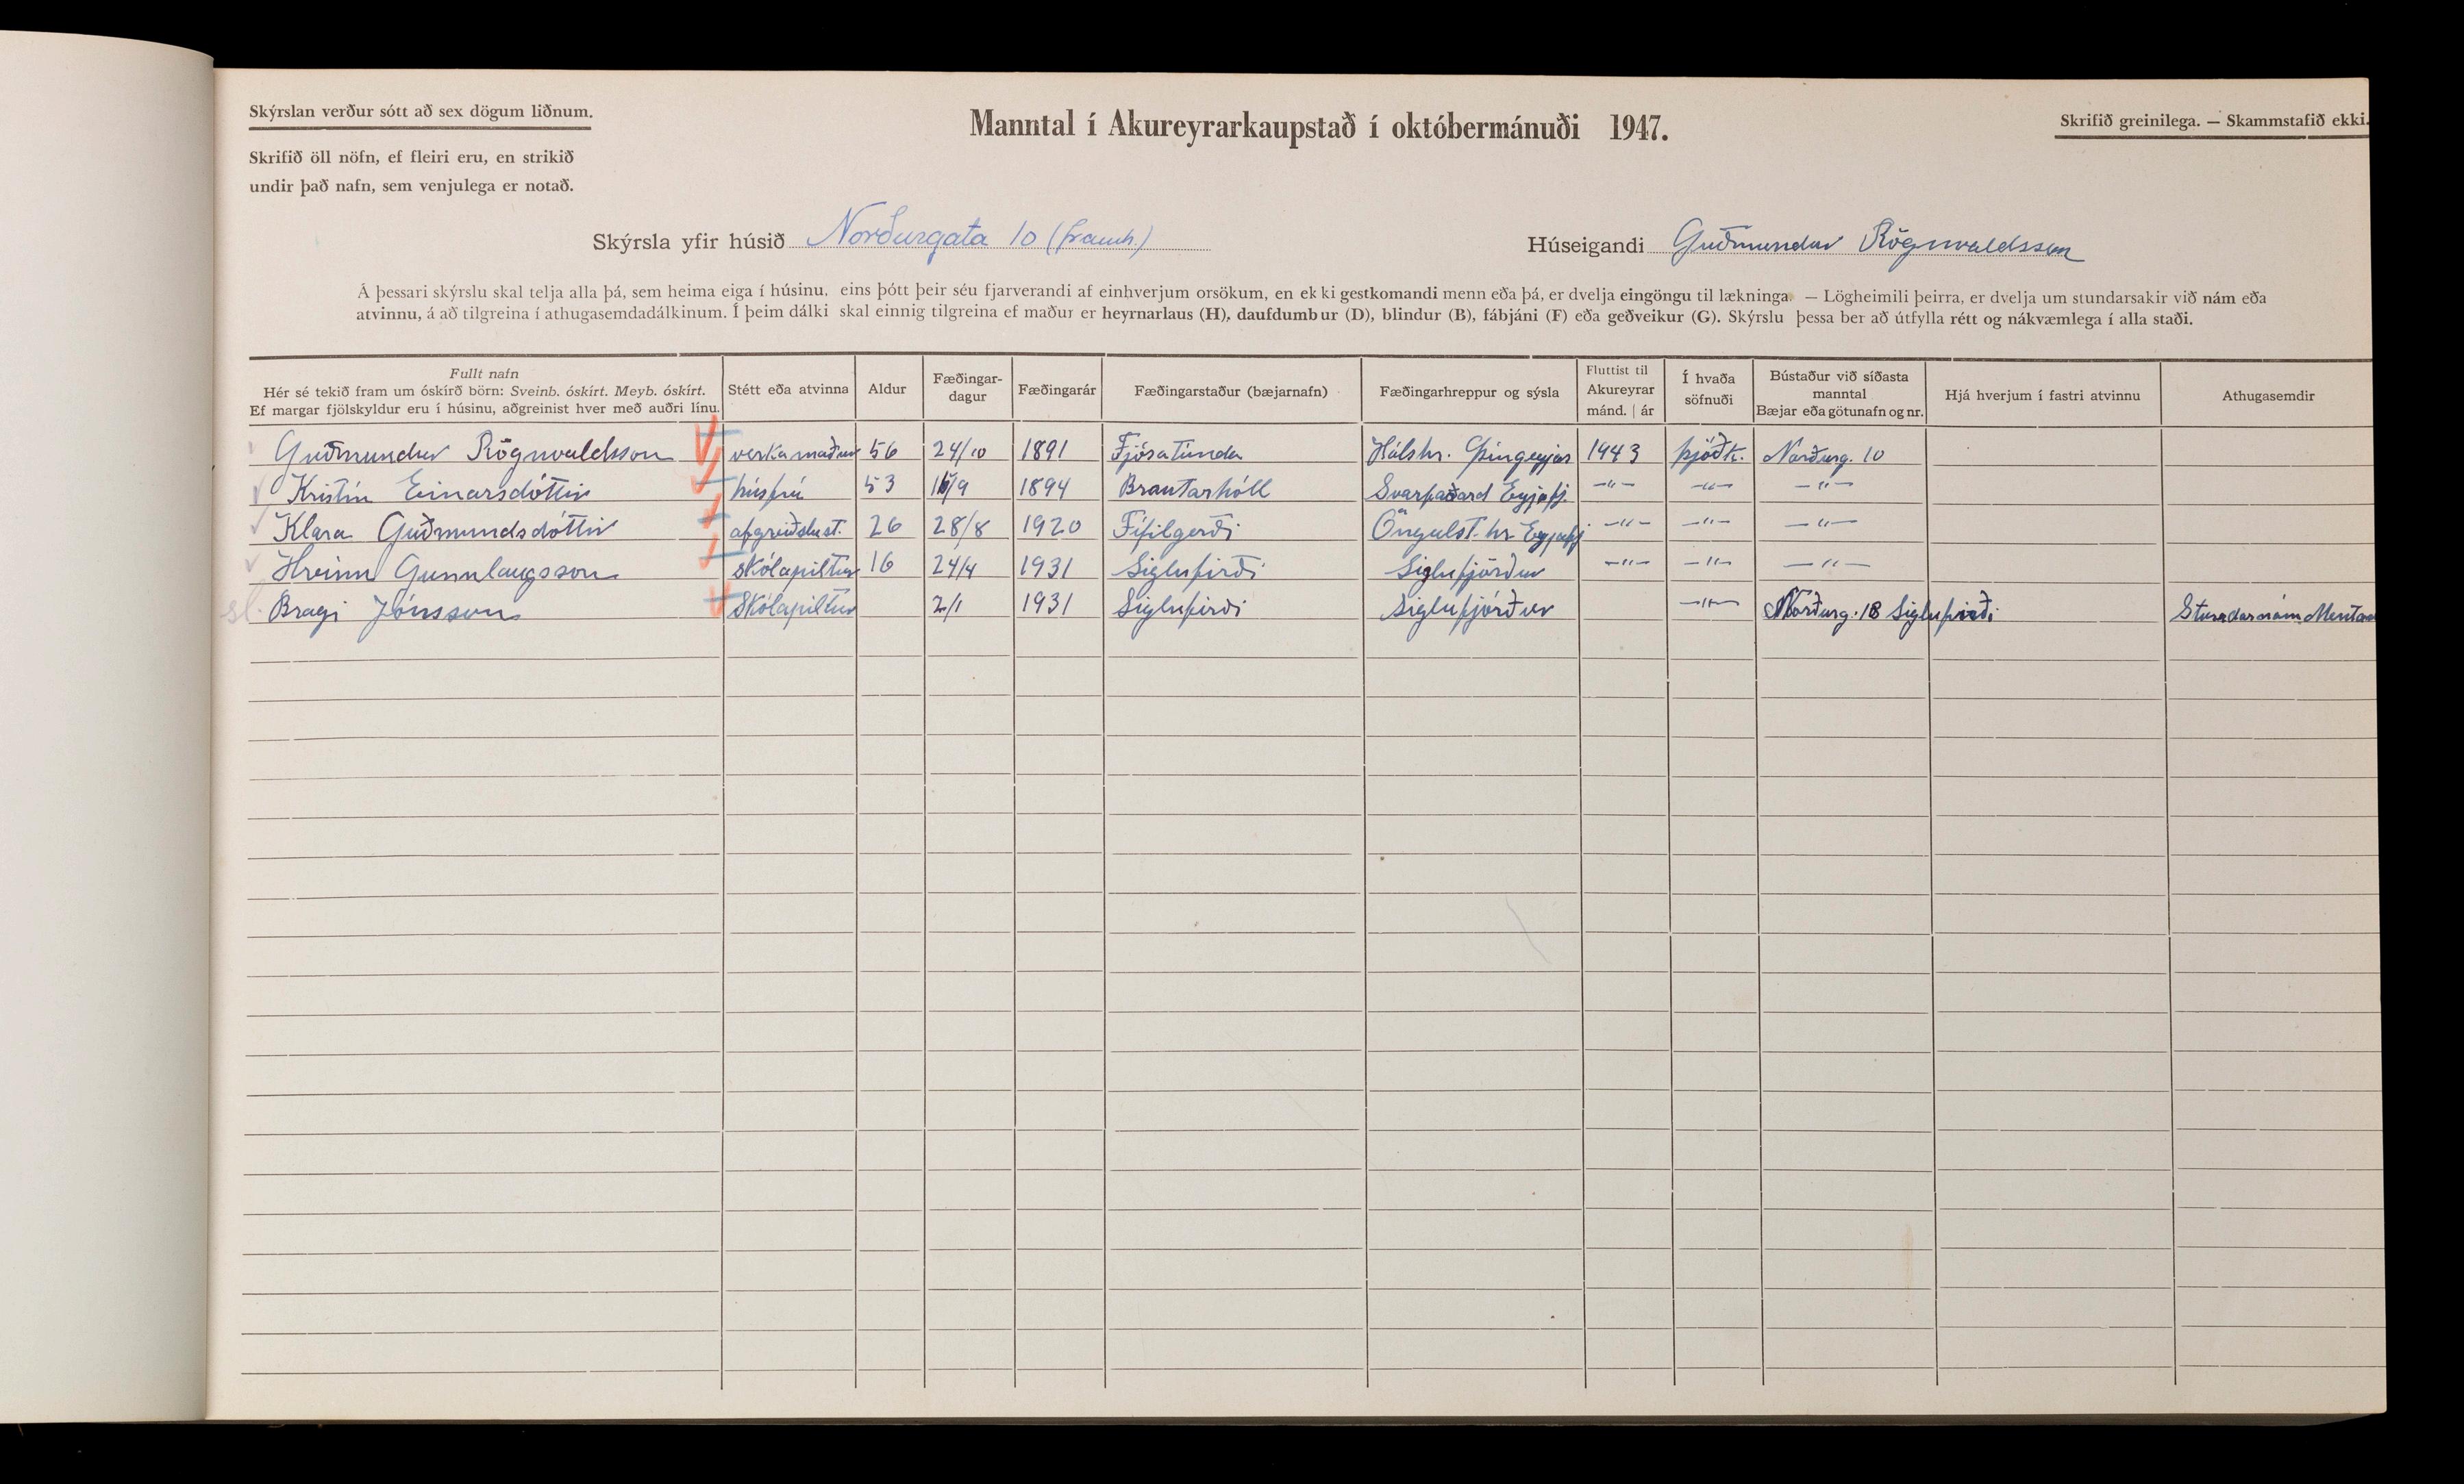 Skýrslan verður sótt að sex dögum liðnum.
Skrifið öll nöfn, ef fleiri eru, en strikið
undir það nafn, sem venjulega er notað.
Manntal í Akureyrarkaupstað í októbermánuði 1947.
Skrifið greinilega. — Skammstafið ekki.
Skýrsla yfir húsið Norðurgata 10 (framh.)
Húseigandi Guðmundur Rögnvaldsson
Á þessari skýrslu skal telja alla þá, sem heima eiga í húsinu, eins þótt þeir séu fjarverandi af einhverjum orsökum, en ekki gestkomandi menn eða þá, er dvelja eingöngu til lækninga. — Lögheimili þeirra, er dvelja um stundarsakir við nám eða
atvinnu, á að tilgreina í athugasemdadálkinum. Í þeim dálki skal einnig tilgreina ef maður er heyrnarlaus (H), daufdumbur (D), blindur (B), fábjáni (F) eða geðveikur (G). Skýrslu þessa ber að útfylla rétt og nákvæmlega í alla staði.
Fullt nafn
Hér sé tekið fram um óskírð börn: Sveinb. óskírt. Meyb. óskírt.
Ef margar fjölskyldur eru í húsinu, aðgreinist hver með auðri línu.
Stétt eða atvinna
Aldur
Fæðingar-
dagur
Fæðingarár
Fæðingarstaður (bæjarnafn)
Fæðingarhreppur og sýsla
Fluttist til
Akureyrar
mánd. | ár
Í hvaða
söfnuði
Bústaður við síðasta
manntal
Bæjar eða götunafn og nr.
Hjá hverjum í fastri atvinnu
Athugasemdir
Guðmundur Rögnvaldsson verkamaður 56 24/10 1891 Fjósatunda Hálshr. Þingeyjar 1943 þjóðk. Norðurg. 10
Kristín Einarsdóttir húsfrú 53 /9 1894 Brautarhóll Svarfaðard Eyjafj. —"— —"— —"—
Klara Guðmundsdóttir afgreiðslust. 26 28/8 1920 Fífilgerði Öngulst. hr Eyjafj —"— —"— —"—
Hreinn Gunnlaugsson skólapiltur 16 24/4 1931 Siglufirði Siglufjörður —"— —"— —"—
sl. Bragi Jónsson skólapiltur 2/1 1931 Siglufirði Siglufjörður —"— Norðurg. 1B Siglufirði Stundar nám Mentask